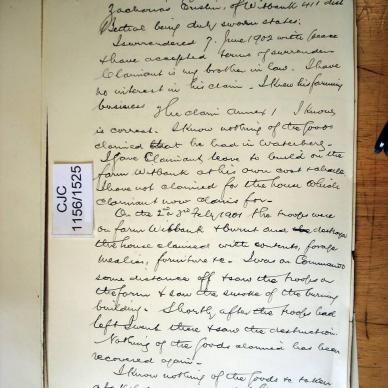 Zacharias Erasmus, of Witbank 411 dist
Bethal being duly sworn states:
I surrendered 7. June 1902 with peace
& have accepted terms of surrender
Claimant is my brother in law. I have
no interest in his claim. I knew his farming
business. The claim annex 1 I know
is correct. I know nothing of the goods
claimed that he had in Waterberg.
I gave Claimant leave to build on the
farm Witbank at his own cost & I
I have not claimed for the house which
Claimant now claims for.
On the 2 & 3rd Feby 1901 the troops were
on farm Witbank & burnt and destroyed
the house claimed with contents, forage
mealies, furniture &c. I was on Commando
some distance off & saw the troops on
the farm & saw the smoke of the burning
building. Shortly after the troops had
left I went there & saw the destruction.
Nothing of the goods claimed has been
recovered again.
I know nothing of the goods to taken
CJC
1156/1525